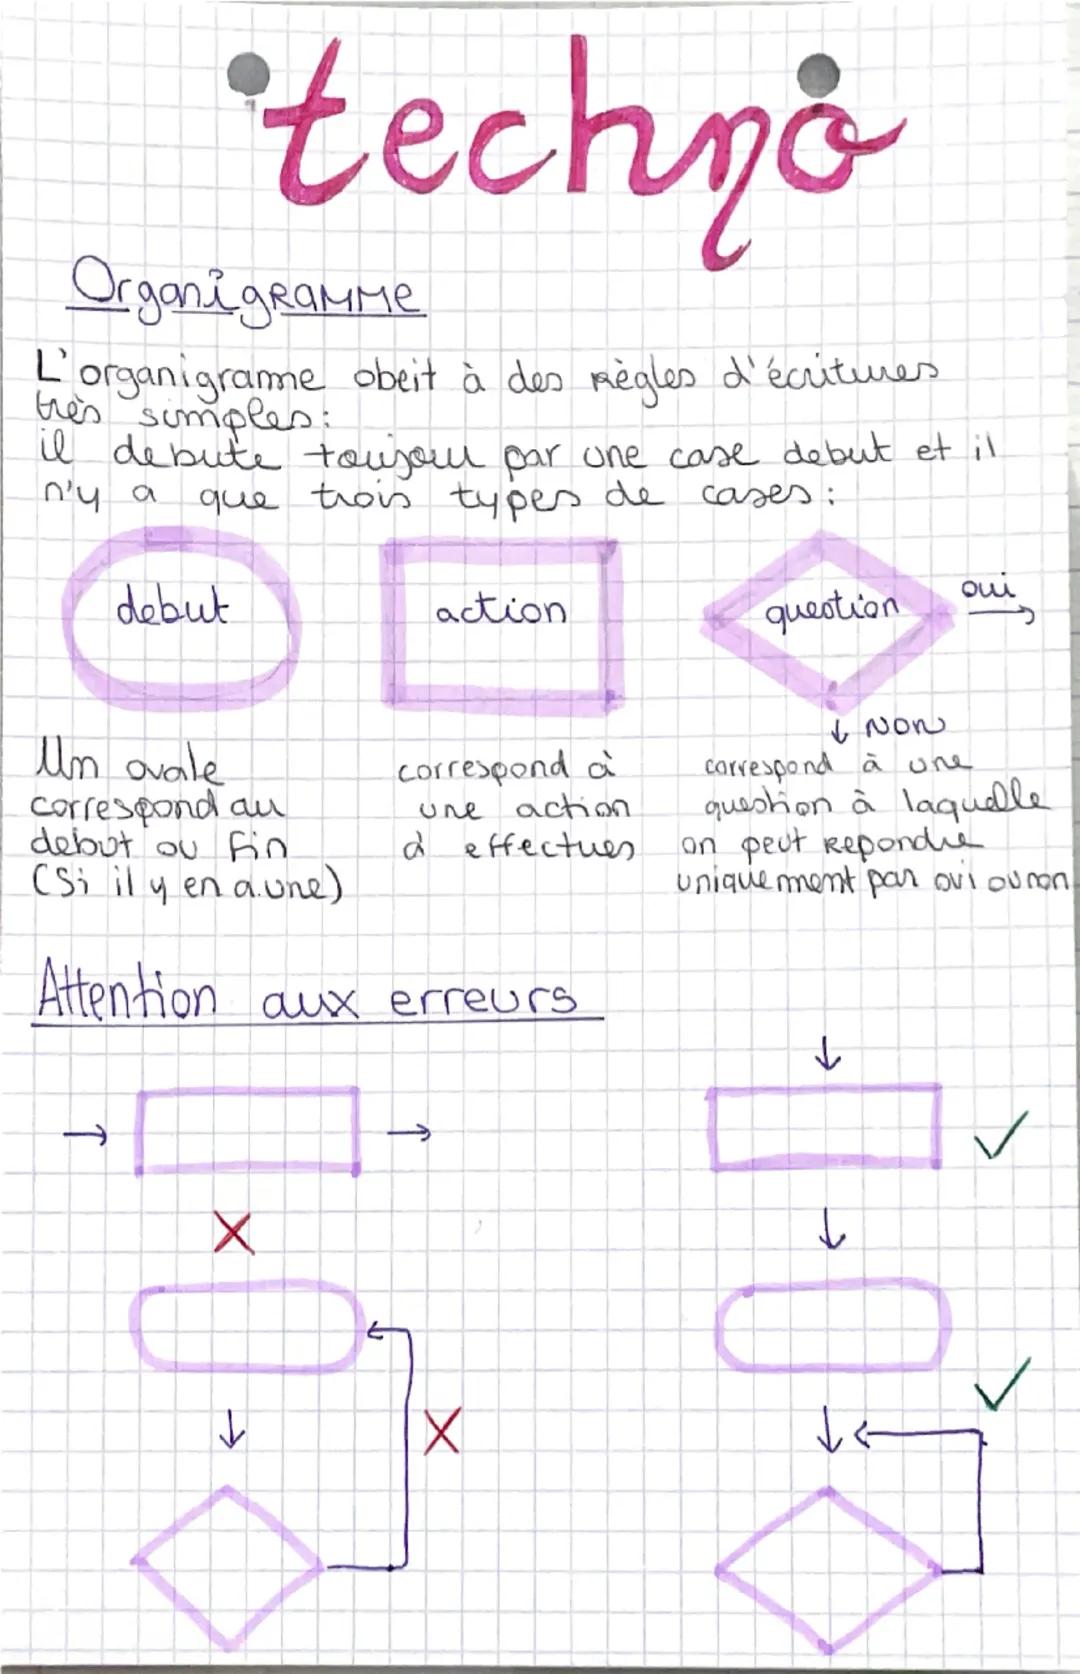 techno
Organigramme
L'organigramme obeit à des règles d'écritures
très simples:
il debute toujour par une case debut et il
n'y a que trois types de cases:
debut
action
question
oui
Non
Un ovale
correspond au
debut ou fin
(Si il y en a une)
correspond à
une action
à effectues
correspond à une
question à laquelle
on peut repondre
uniquement par oui ou non
Attention aux erreurs